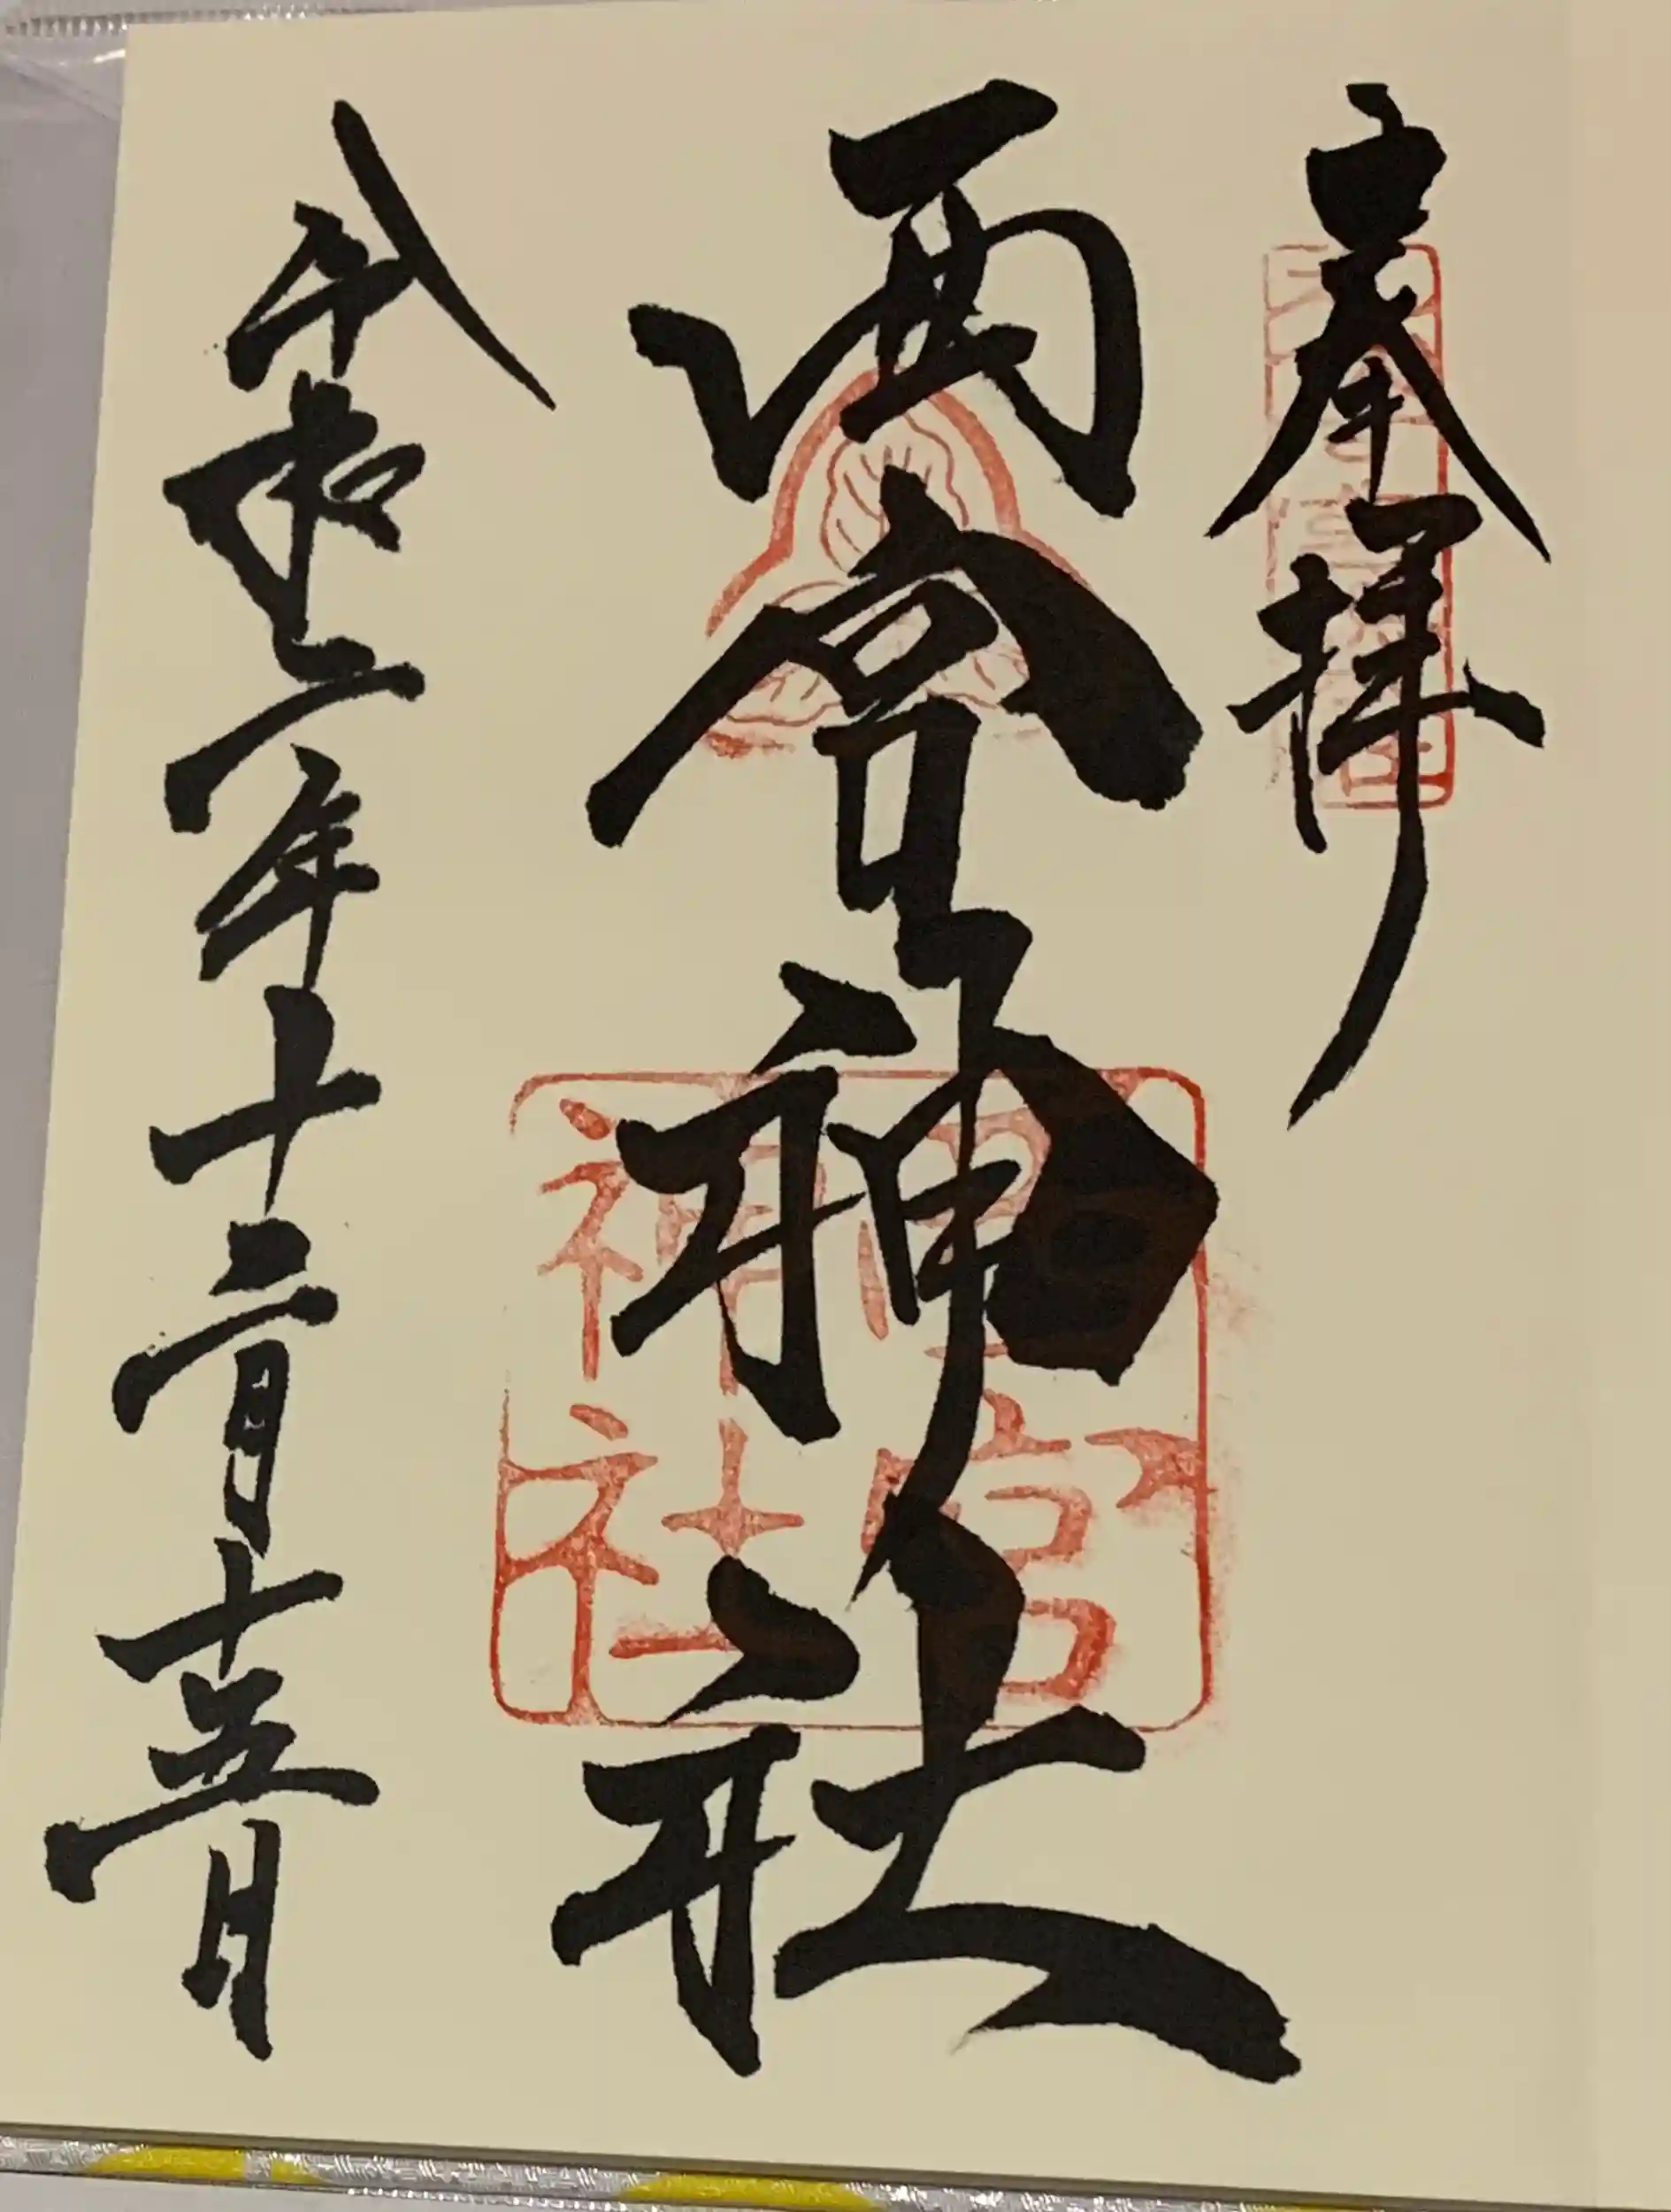 奉拝
西宮神社
西宮
神社
令和二年十二月十五日